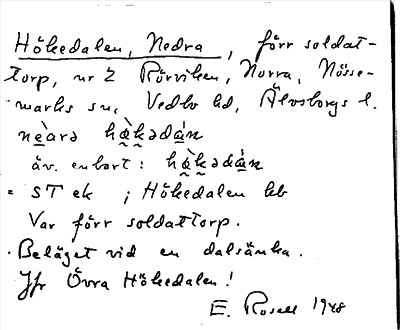 Hökedalen, Nedra, förr soldat-
torp, nr 2 Rörviken, Norra, Nösse-
marks sn, Vedbo hd, Älvsborgs l.
nèarə hàkədán
äv. enbart: hàkədán
= ST ek ; Hökedalen kb
Var förr soldattorp.
Beläget vid en dalsänka.
Jfr Övra Hökedalen!
E. Rosell 1948